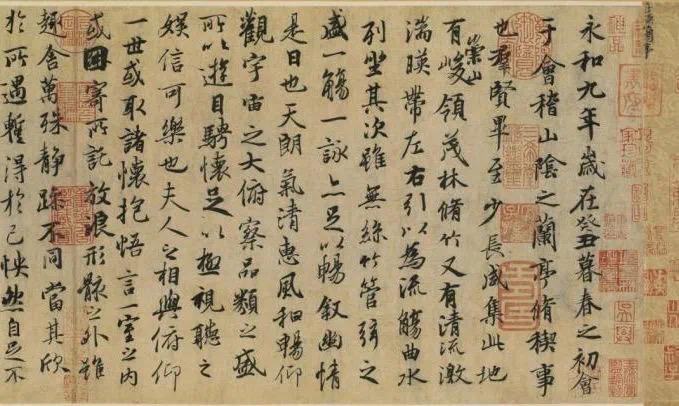 永和九年歲在癸丑暮春之初會
于會稽山陰之蘭亭脩稧事
也羣賢畢至少長咸集此地
有崇山峻領茂林脩竹又有清流激
湍暎帶左右引以為流觴曲水
列坐其次雖無絲竹管弦之
盛一觴一詠亦足以暢敘幽情
是日也天朗氣清惠風和暢仰
觀宇宙之大俯察品類之盛
所以遊目騁懷足以極視聽之
娛信可樂也夫人之相與俯仰
一世或取諸懷抱悟言一室之內
或因寄所託放浪形骸之外雖
趣舍萬殊靜躁不同當其欣
於所遇蹔得於己怏然自足不